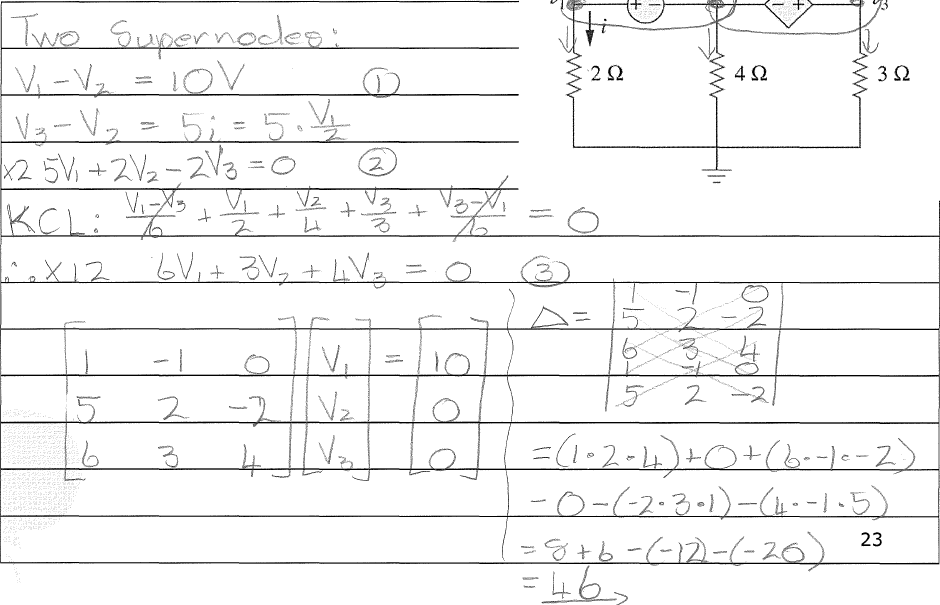 v₁ v₃
Two Supernodes:
i
V₁ - V₂ = 10V ①
2 Ω 4 Ω 3 Ω
V₃ - V₂ = 5i = 5 · V₁/2
x2 5V₁ + 2V₂ - 2V₃ = 0 ②
KCL: (V₁-V₃)/6 + V₁/2 + V₂/4 + V₃/3 + (V₃-V₁)/6 = 0
∴ x12 6V₁ + 3V₂ + 4V₃ = 0 ③
1 -1 0 V₁ = 10
5 2 -2 V₂ 0
6 3 4 V₃ 0
Δ = 1 -1 0
5 2 -2
6 3 4
1 -1 0
5 2 -2
= (1·2·4) + 0 + (6·-1·-2)
- 0 - (-2·3·1) - (4·-1·5)
= 8 + 6 - (-12) - (-20)
= 46
23